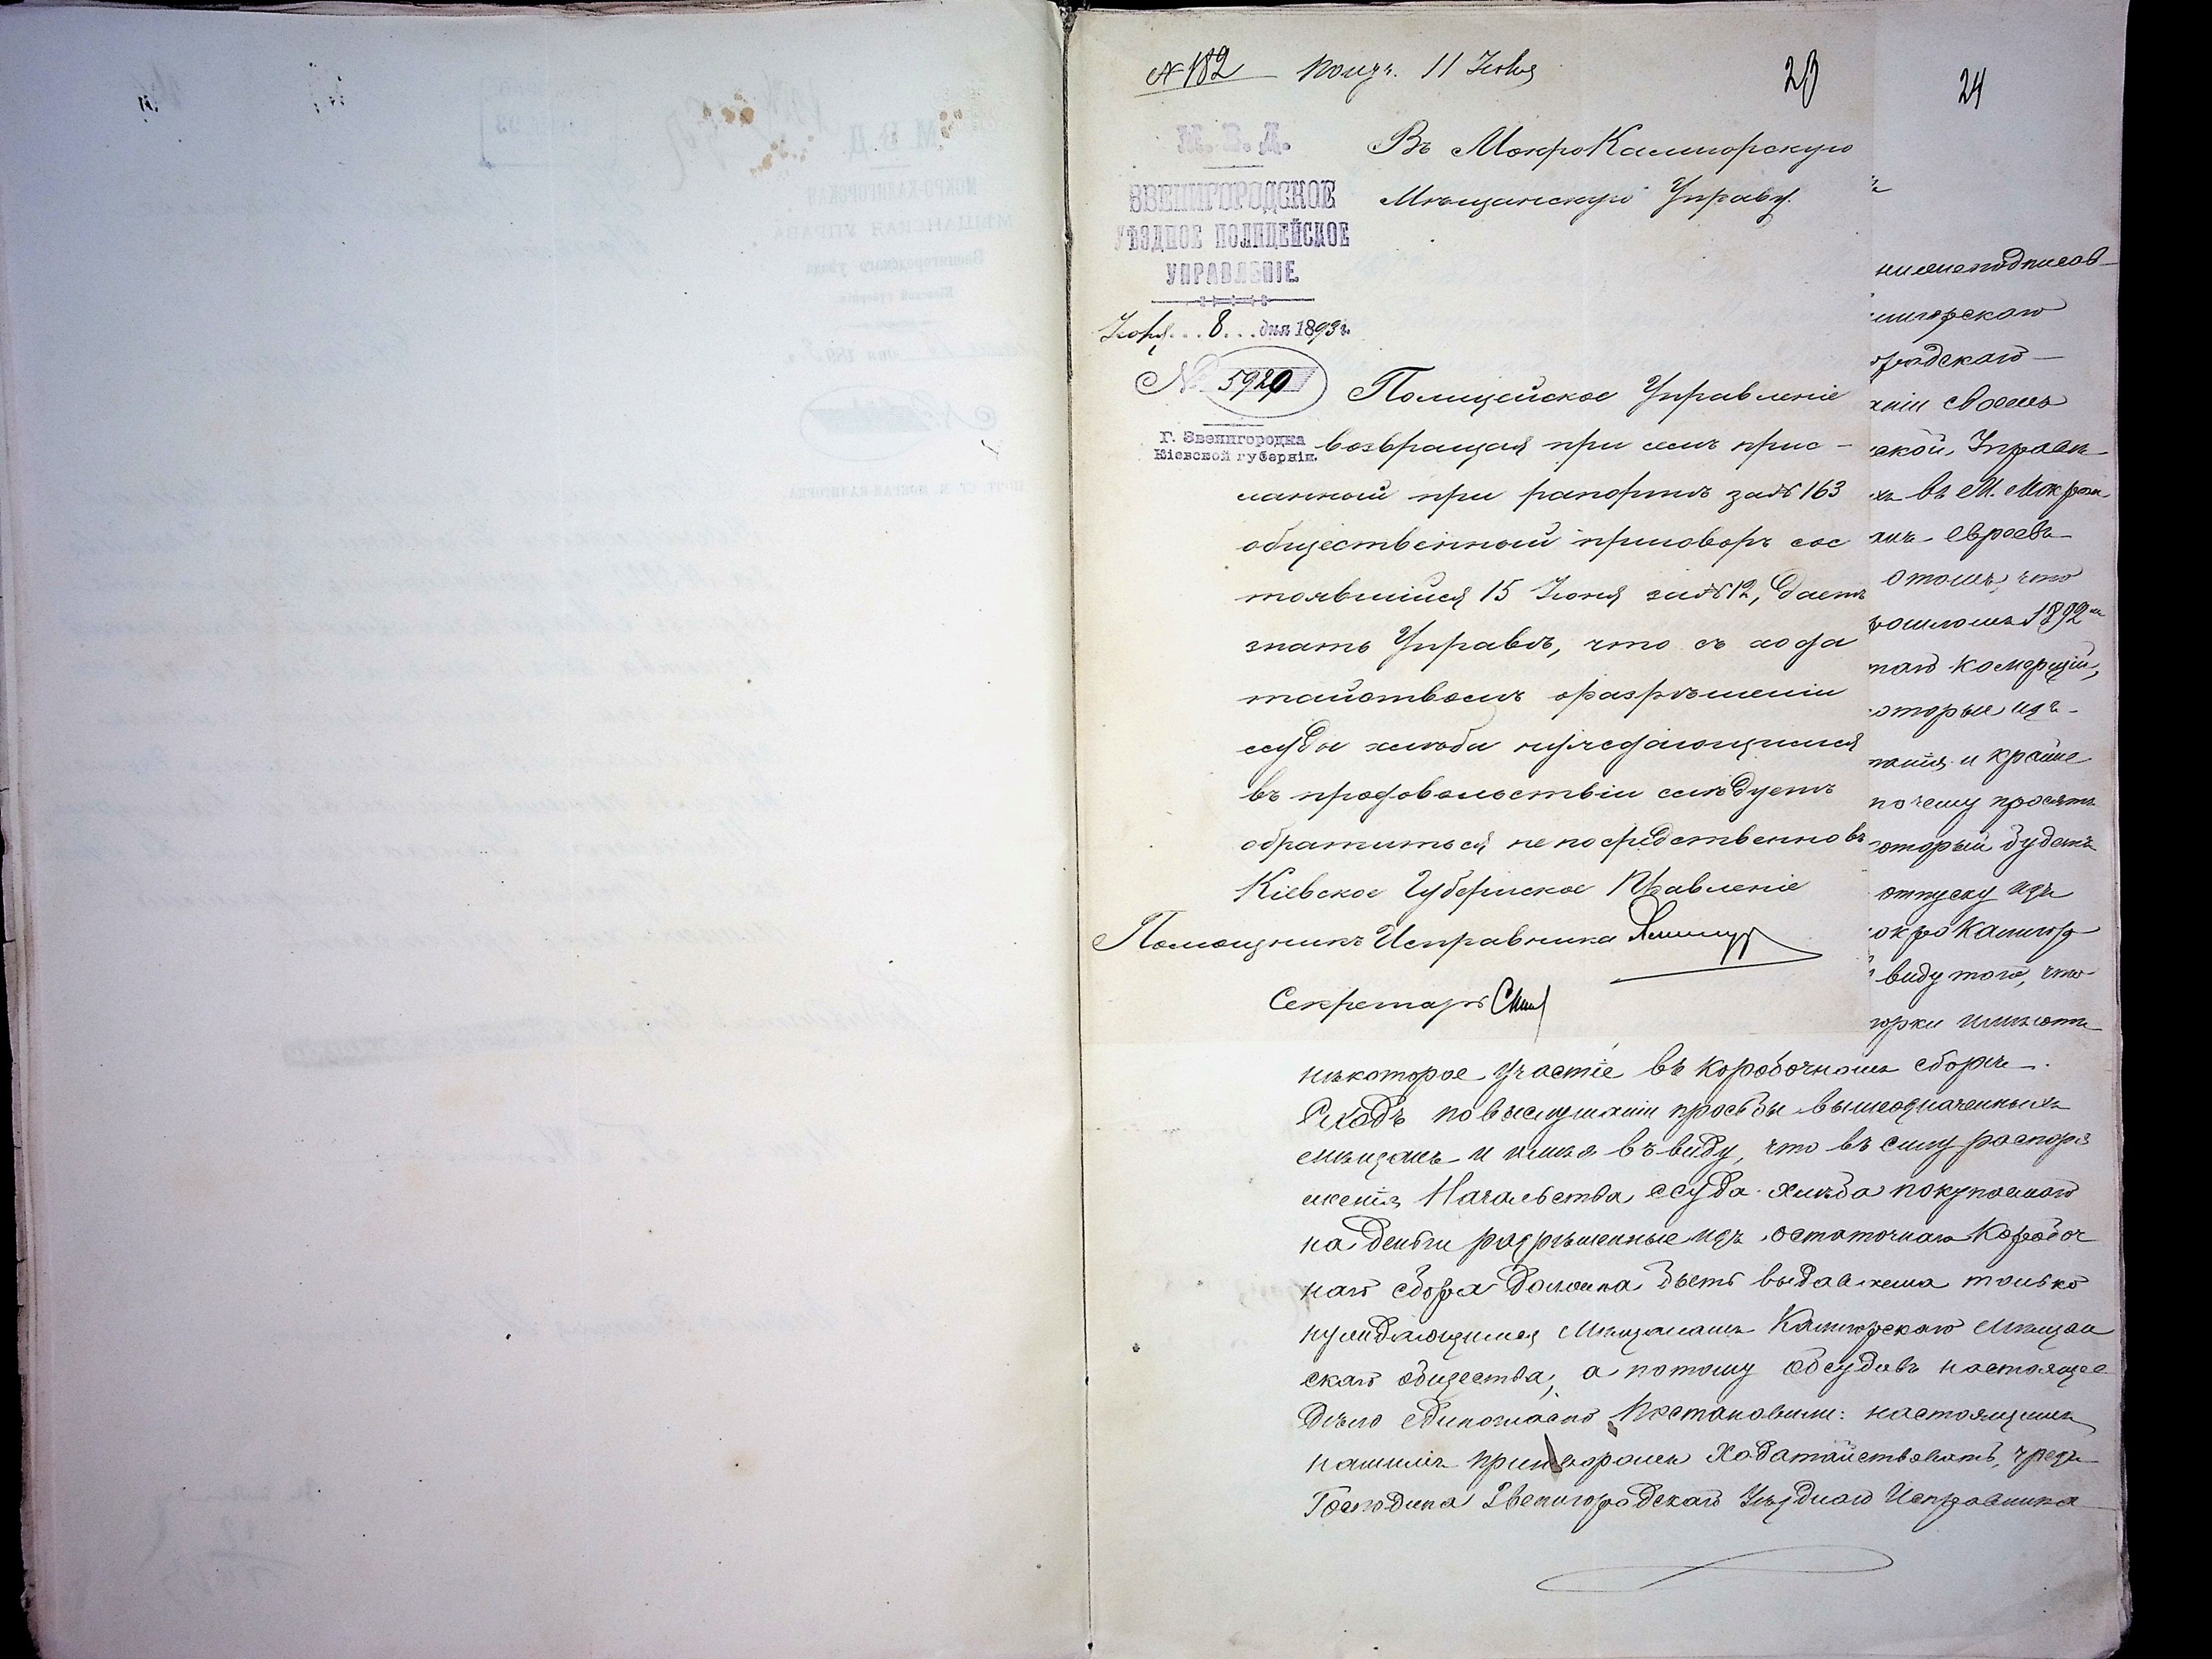 № 182 Получ. 11 Іюля
23
24
М. В. Д.
ЗВЕНИГОРОДСКОЕ
УѢЗДНОЕ ПОЛИЦЕЙСКОЕ
УПРАВЛЕНІЕ.
Іюля 8 дня 1893 г.
№ 5929
Г. Звенигородка
Кіевской губерніи.
Въ МокроКалигорскую
Мѣщанскую Управу.
Полицейское Управленіе
возвращая при семъ прис-
ланный при рапортѣ за № 163
общественный приговоръ сос
тоявшійся 15 Іюня за № 12, даетъ
знать Управѣ, что съ хода
тайствомъ о разрѣшеніи
ссуды хлѣба нуждающимся
въ продовольствіи слѣдуетъ
обратиться непосредственно въ
Кіевское Губернское Правленіе
Помощникъ Исправника
Секретарь
нижеподписав
лигорскаго
ородскаго
аніи своемъ
ской Управѣ
хъ въ М. Мокрой
евреевъ
о томъ, что
рошломъ 1892 м
таго комерціи,
оторые изъ
танія и крайне
почему просятъ
оторый будетъ
отпуску изъ
окро Калигор
виду того, что
горки имѣютъ
нѣкоторое участіе въ коробочномъ сборѣ.
Сходъ по выслушаніи просьбы вышеозначенныхъ
мѣщанъ и имѣя въ виду, что въ силу распоря
женія Начальства ссуда хлѣба покупаемаго
на деньги разрѣшенные изъ остаточнаго Коробоч
наго сбора должна быть выдаваема только
нуждающимся Мѣщанамъ Калигорскаго мѣщан
скаго общества, а потому обсудивъ настоящее
дѣло единогласно Постановили: настоящимъ
нашимъ приговоромъ Ходатайствовать, чрезъ
Господина Звенигородскаго Уѣзднаго Исправника